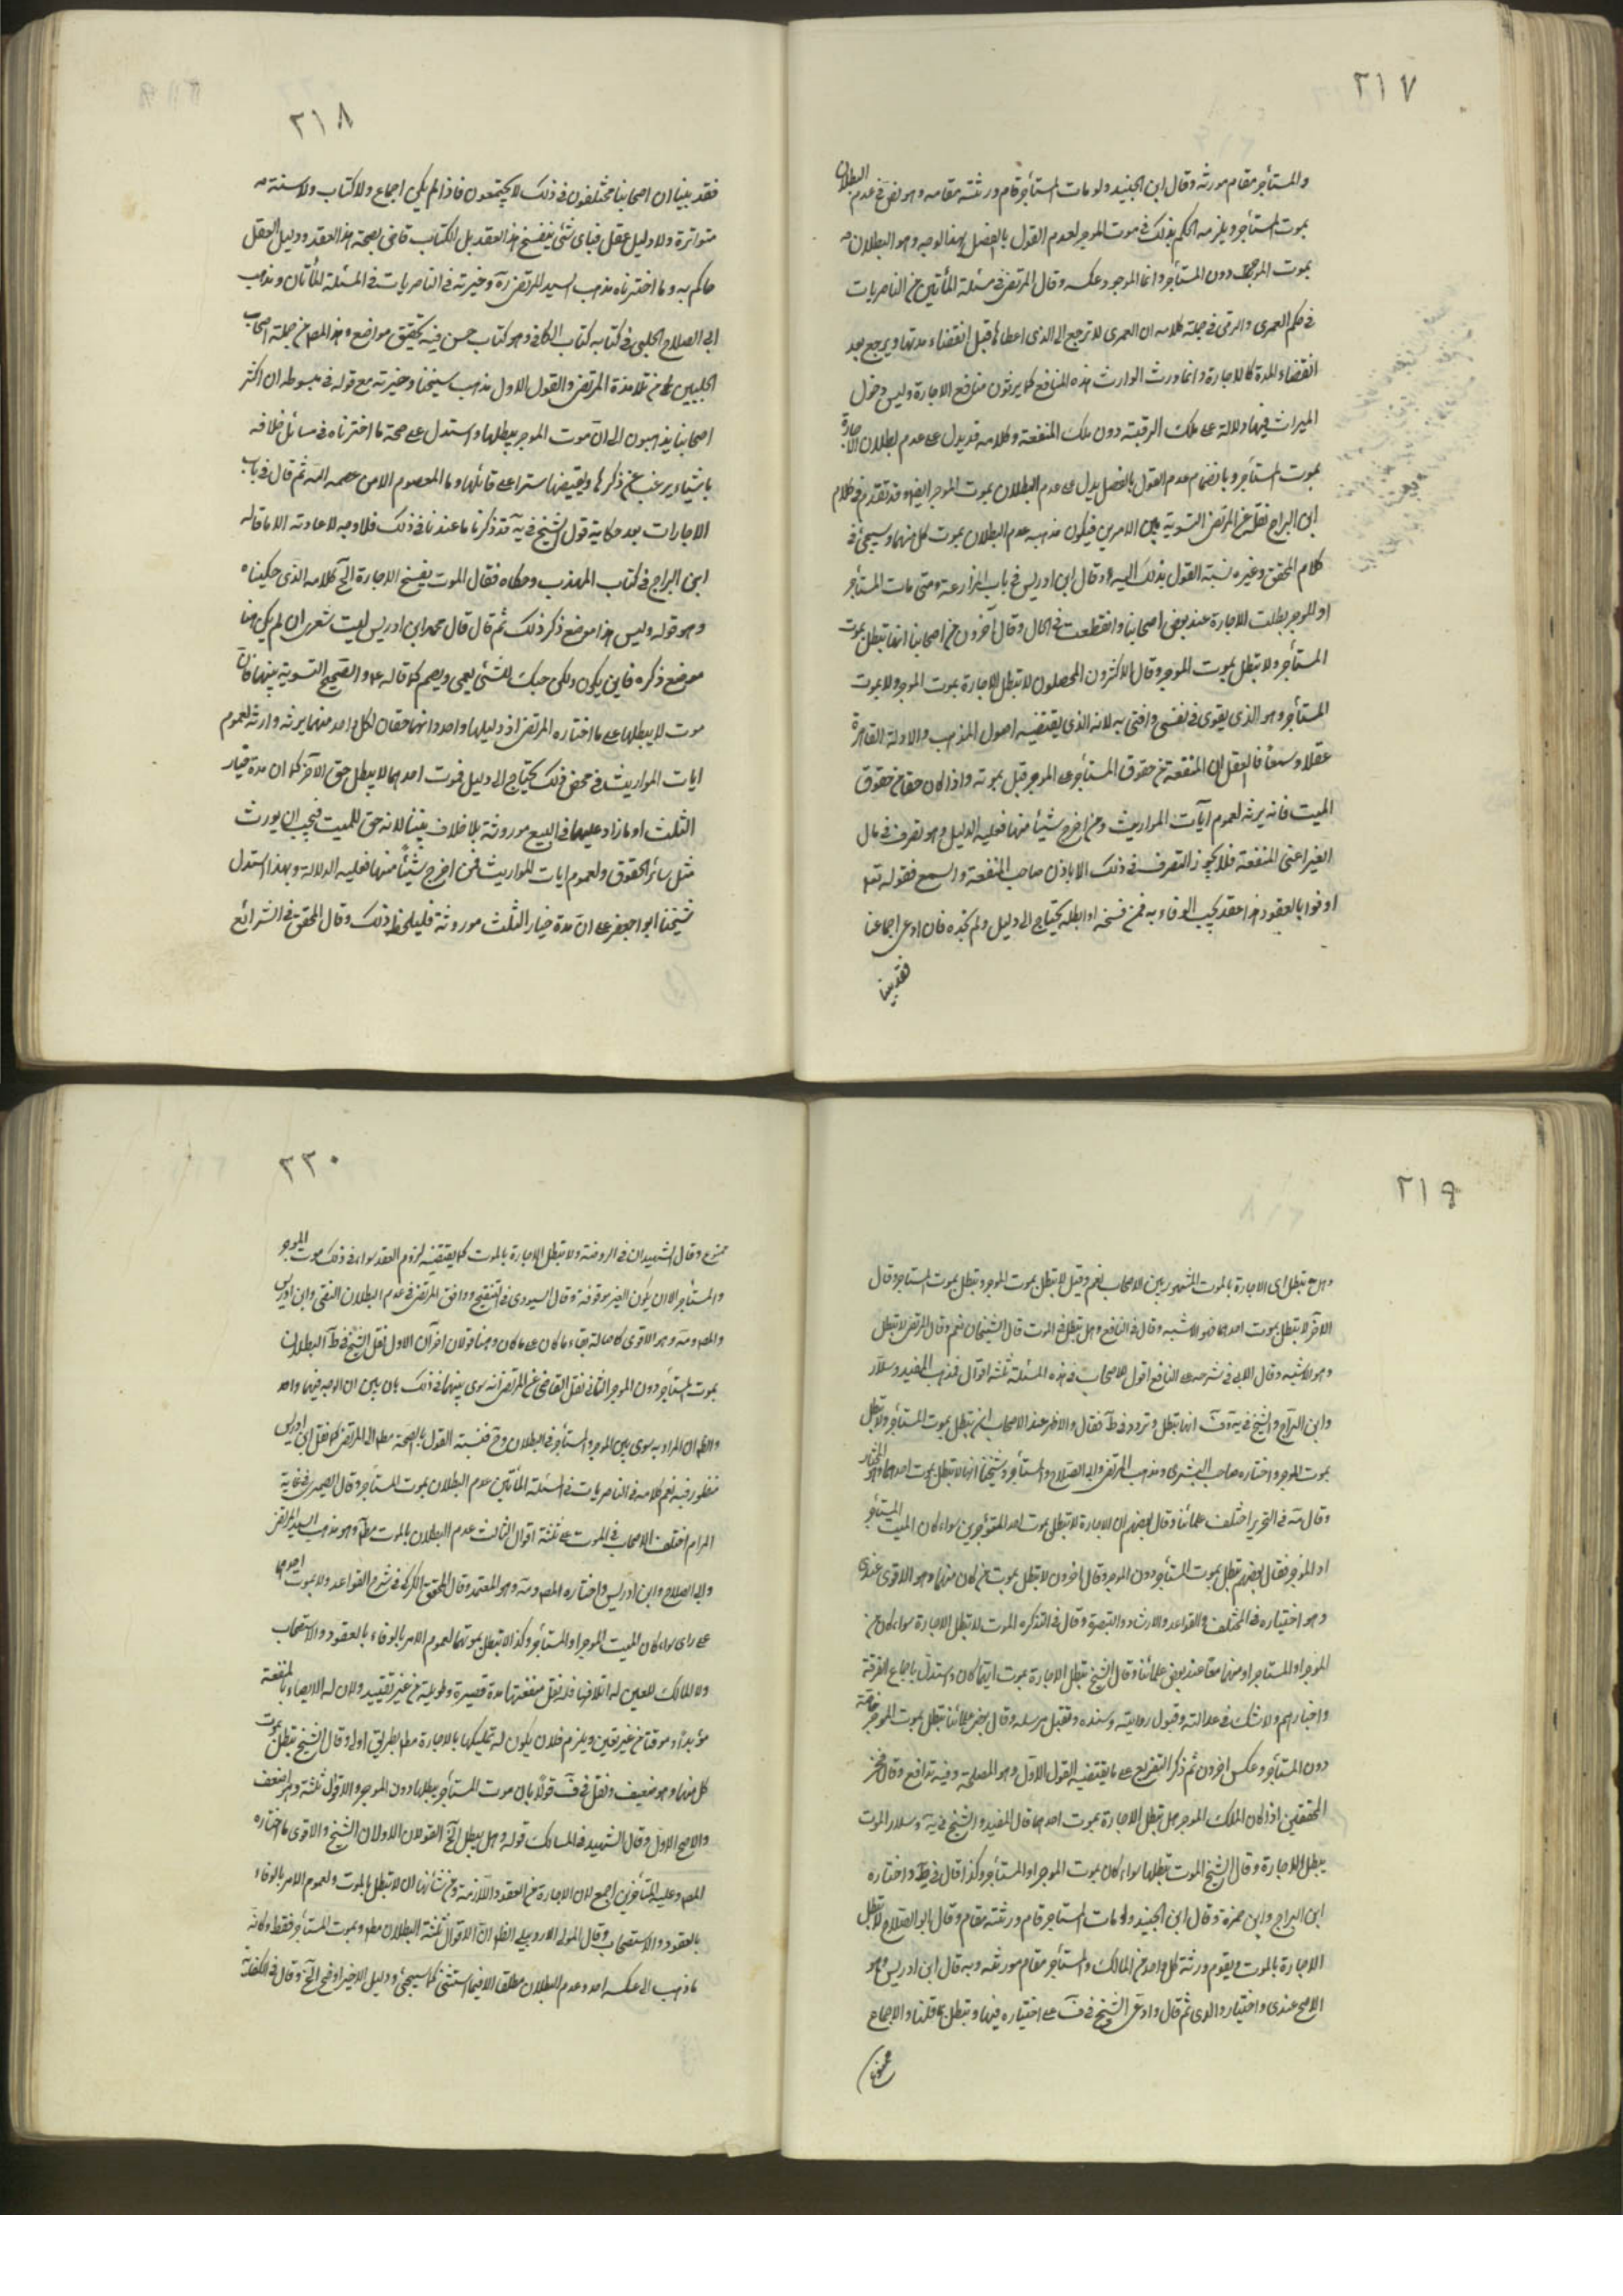 ٢١٧
والمستأجر مقام مورثه وقال ابن الجنيد ولو مات المستأجر قام ورثته مقامه وهو نص في عدم البطلان
بموت المستأجر ويلزمه الحكم بذلك في موت الموجر لعدم القول بالفصل بهذا الوجه وهو البطلان
بموت الموجر دون المستأجر وانما الموجود عكسه وقال المرتضى في مسئلة المأتين من الناصريات
في حكم العمرى والرقبى في جملة كلامه ان العمرى لا ترجع الى الذى اعطاها قبل انقضاء مدتها ويرجع بعد
انقضاء المدة كالاجارة وانما ورث الوارث هذه المنافع كما يرثون منافع الاجارة وليس دخول
الميراث فيها دلالة على ملك الرقبة دون ملك المنفعة وكلامه قد يدل على عدم بطلان الاجارة
بموت المستأجر وبانضمام عدم القول بالفصل يدل على عدم البطلان بموت الموجر ايضا وقد تقدم في كلام
ابن البراج نقل عن المرتضى التسوية بين الامرين فيكون مذهبه عدم البطلان بموت كل منهما وسيجئ في
كلام المحقق وغيره نسبة القول بذلك اليه وقال ابن ادريس في باب المزارعة ومتى مات المستأجر
او الموجر بطلت الاجارة عند بعض اصحابنا وانقطعت في الحال وقال آخرون من اصحابنا انها تبطل بموت
المستأجر ولا تبطل بموت الموجر وقال الاكثرون المحصلون لا تبطل الاجارة بموت الموجر ولا بموت
المستأجر وهو الذى يقوى في نفسى وافتى به لانه الذى يقتضيه اصول المذهب والادلة القاهرة
عقلا وسمعا فالعقل ان المنفعة من حقوق المستأجر على الموجر قبل موته واذا كان حقا من حقوق
الميت فانه يرثه لعموم آيات المواريث ومن اخرج شيئا منها فعليه الدليل وهو تصرف في مال
الغير اعنى المنفعة فلا يجوز التصرف في ذلك الا باذن صاحب المنفعة والسمع فقوله تعه
اوفوا بالعقود هذا عقد يجب الوفاء به فمن فسخه او ابطله يحتاج الى دليل ولم نجده فان ادعى اجماعنا
فقد بينا
٢١٨
فقد بينا ان اصحابنا مختلفون في ذلك لا يجتمعون فاذا لم يكن اجماع ولا كتاب ولا سنة
متواترة ولا دليل عقل فباى شئ ينفسخ هذا العقد بل الكتاب قاض بصحة هذا العقد ودليل العقل
حاكم به وما اخترناه مذهب السيد المرتضى ره وخيرته في الناصريات في المسئلة المأتان ومذهب
ابى الصلاح الحلبى في كتابه كتاب الكافى وهو كتاب حسن فيه تحقيق مواضع وهذا المصه من جملة اصحاب
الحلبيين من تلامذة المرتضى والقول الاول مذهب شيخنا وخيرته مع قوله في مبسوطه ان اكثر
اصحابنا يذهبون الى ان موت الموجر يبطلها واستدل على صحة ما اختاره في مسائل خلافه
باشياء يرغب عن ذكرها وتقتضيها سترا على قائلها وما المعصوم الا من عصمه الله ثم قال في باب
الاجارات بعد حكاية قول الشيخ في يه قد ذكرنا ما عندنا في ذلك فلا وجه لاعادته الا ما قاله
ابن البراج في كتاب المهذب وحكاه فقال الموت يفسخ الاجارة الخ كلامه الذى حكيناه
وهو قوله وليس هذا موضع ذكر ذلك ثم قال قال محمد ابن ادريس ليت شعرى ان لم يكن هنا
موضع ذكره فاين يكون ولكن حبك للشئ يعمى ويصم كما قاله ع والصحيح التسوية بينهما فان
موت لا يبطلها على ما اختاره المرتضى اذ دليلهما واحد وانهما حقان لكل واحد منهما يرثه وارثه لعموم
ايات المواريث فمن خص ذلك يحتاج الى دليل فموت احدهما لا يبطل حق الآخر كما ان مدة خيار
الثلث او ما زاد عليها في البيع موروثة بلا خلاف بيننا لانه حق للميت فيجب ان يورث
مثل سائر الحقوق ولعموم ايات المواريث فمن اخرج شيئا منها فعليه الدلالة وبهذا استدل
شيخنا ابو اجعفر على ان مدة خيار الثلث موروثة فليلحظ ذلك وقال المحقق في الشرائع
٢١٩
وهل تبطل اى الاجارة بالموت المشهور بين الاصحاب نعم وقيل لا تبطل بموت الموجر وتبطل بموت المستاجر وقال
الآخر لا تبطل بموت احدهما وهو الاشبه وقال في النافع وهل تبطل في الموت قال الشيخان نعم وقال المرتضى لا تبطل
وهو الاشبه وقال الابى في شرحه على النافع اقول للاصحاب في هذه المسئلة ثلثة اقوال فذهب المفيد وسلار
وابن البراج والشيخ في يه وف انها تبطل وتردد في ط فقال والاظهر عند الاصحاب ان تبطل بموت المستأجر ولا تبطل
بموت الموجر واختاره صاحب البشرى ومذهب المرتضى وابى الصلاح والمستأجر وشيخنا انها لا تبطل بموت احدهما وهو المختار
وقال مه في التحرير اختلف علمائنا فقال بعضهم ان الاجارة لا تبطل بموت احد المتؤجرين سواء كان الميت المستأجر
او الموجر فقال بعضهم تبطل بموت المستأجر دون الموجر وقال اخرون لا تبطل بموت من كان منهما وهو الاقوى عندى
وهو اختياره في المختلف والقواعد والارشاد والتبصرة وقال في التذكره الموت لا تبطل الاجارة سواء كان من
الموجر او المستاجر او منهما معا عند بعض علمائنا وقال الشيخ تبطل الاجارة بموت ايهما كان واستدل باجماع الفرقة
واخبارهم ولا شك في عدالته وقبول روايته وسنده وتقبل مرسله وقال بعض علمائنا تبطل بموت الموجر خاصة
دون المستأجر وعكس اخرون ثم ذكر التفريع على ما يقتضيه القول الاول وهو المصلحة وفيه تدافع وقال فخر
المحققين اذا كان الملك الموجر هل تبطل الاجارة بموت احدهما قال المفيد والشيخ في يه وسلار الموت
يبطل الاجارة وقال الشيخ الموت يبطلها سواء كان بموت الموجر او المستأجر وكذا قال في ط واختاره
ابن البراج وابن حمزة وقال ابن الجنيد ولو مات المستاجر قام ورثته مقام وقال ابو الصلاح لا تبطل
الاجارة بالموت ويقوم ورثة كل واحد من المالك والمستأجر مقام مورثه وبه قال ابن ادريس وهو
الاصح عندى واختيار والدى ثم قال وادعى الشيخ في ف على اختياره فيها وتبطل بما قلنا والاجماع
ممنوع
٢٢٠
ممنوع وقال الشهيدان في الروضة ولا تبطل الاجارة بالموت كما يقتضيه لزوم العقد سواء في ذلك موت الموجر
والمستأجر الا ان يكون العين موقوفة وقال السيورى في التنقيح ووافق المرتضى في عدم البطلان التقى وابن ادريس
والمصه ومه وهو الاقوى لاصالة بقاء ما كان على ما كان وهنا قولان اخران الاول نقل الشيخ في ط البطلان
بموت المستأجر دون الموجر الثانى نقل القاضى عن المرتضى انه سوى بينهما في ذلك بان بين ان الوجه فيهما واحد
والظ ان المراد به سوى بين الموجر والمستأجر في البطلان وح فنسبة القول بالصحة مط الى المرتضى كما فعل ابن ادريس
منظور فيه نعم كلامه في الناصريات في المسئلة المأتين عدم البطلان بموت المستاجر وقال الصيمرى في غاية
المرام اختلف الاصحاب في الموت على ثلثة اقوال الثالث عدم البطلان بالموت مط وهو مذهب السيد المرتضى
وابى الصلاح وابن ادريس واختاره المصه ومه وهو المعتمد وقال المحقق الكركى في شرح القواعد ولا بموت احدهما
على راى سواء كان الميت الموجر او المستأجر وكذا لا تبطل بموتهما لعموم الامر بالوفاء بالعقود والاستصحاب
ولا المالك للعين له اتلافها فله نقل منفعتها مدة قصيرة وطويلة من غير تقييد ولان له الايصاء بالمنفعة
مؤبدا وموقتا من غير تعيين ويلزم فلان يكون له تمليكها بالاجارة مط بطريق اولى وقال الشيخ تبطل بموت
كل منهما وهو ضعيف ونقل في ف قولا بان موت المستأجر يبطلها دون الموجر والاقوال ثلثة وهو اضعف
والاصح الاول وقال الشهيد في المسالك قوله وهل يبطل الخ القولان الاولان للشيخ والاقوى ما اختاره
المصه وعليه المتأخرين اجمع لان الاجارة من العقود اللازمة ومن شأنها ان لا تبطل بالموت ولعموم الامر بالوفاء
بالعقود والاستصحاب وقال المولى الاردبيلى الظ ان الاقوال ثلثة البطلان مط وبموت المستأجر فقط وكانه
ما ذهب الى عكسه احد وعدم البطلان مطلقا الا فيما استثنى كما سيجئ ودليل الاخير اوضح الخ وقال في الكفاية